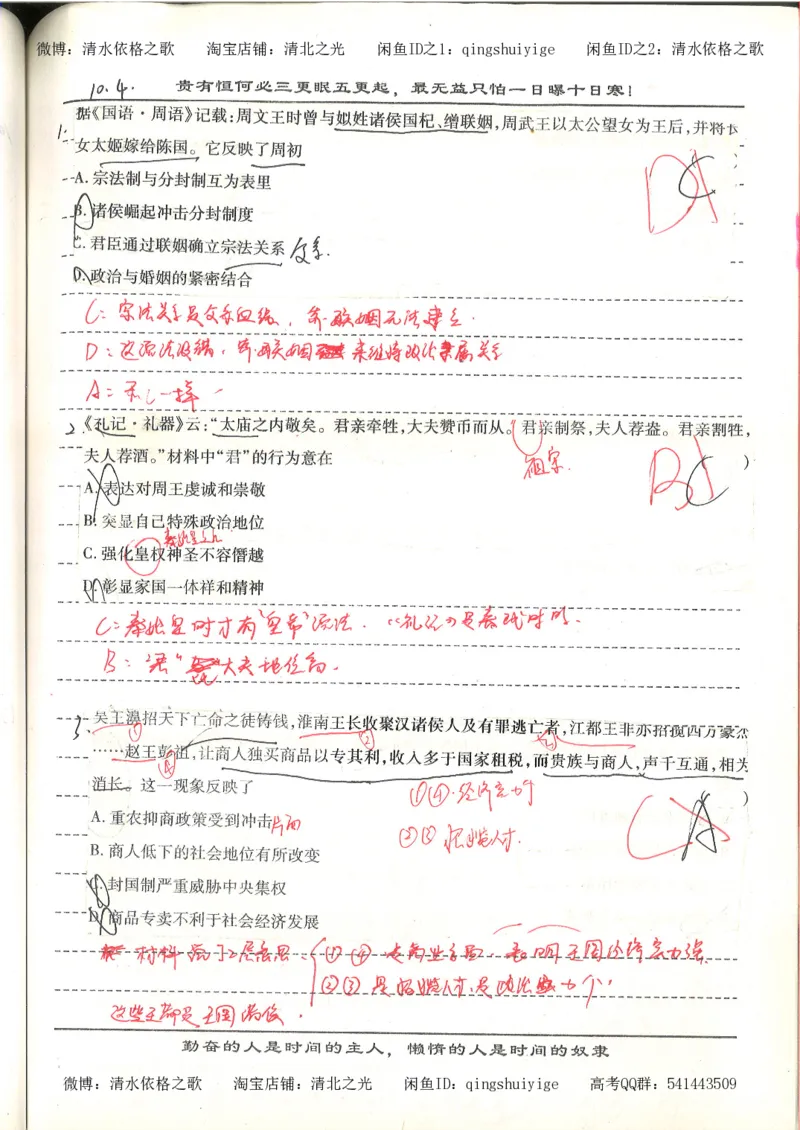 微博：清水依格之歌 淘宝店铺：清北之光 闲鱼ID之1：qingshuiyige 闲鱼ID之2：清水依格之歌
10.4. 贵有恒何必三更眠五更起，最无益只怕一日曝十日寒！
1. 据《国语·周语》记载：周文王时曾与姒姓诸侯国杞、缯联姻，周武王以太公望女为王后，并将长
女太姬嫁给陈国。它反映了周初
A. 宗法制与分封制互为表里
B. 诸侯崛起冲击分封制度
C. 君臣通过联姻确立宗法关系
D. 政治与婚姻的紧密结合
D C
C：宗法关系是父系血缘，靠联姻无法建立.
D：这源法没错，靠联姻来维持政治关系
A：不一样
2. 《礼记·礼器》云：“太庙之内敬矣。君亲牵牲，大夫赞币而从。君亲制祭，夫人荐盎。君亲割牲，
夫人荐酒。”材料中“君”的行为意在 ）
祖宗.
A. 表达对周王虔诚和崇敬
B. 突显自己特殊政治地位
C. 强化皇权神圣不容僭越
D. 彰显家国一体祥和精神
B C
C：秦始皇时才有“皇帝”说法.《礼记》是春秋时的.
3. 吴王濞招天下亡命之徒铸钱，淮南王长收聚汉诸侯人及有罪逃亡者，江都王非亦招揽四方豪杰
……赵王彭祖，让商人独买商品以专其利，收入多于国家租税，而贵族与商人，声千互通，相为
消长。这一现象反映了 ）
①④：经济实力
②③
A. 重农抑商政策受到冲击 片面
B. 商人低下的社会地位有所改变
C. 封国制严重威胁中央集权
D. 商品专卖不利于社会经济发展
C A
这些王都是王国诸侯.
勤奋的人是时间的主人，懒惰的人是时间的奴隶
微博：清水依格之歌 淘宝店铺：清北之光 闲鱼ID：qingshuiyige 高考QQ群：541443509